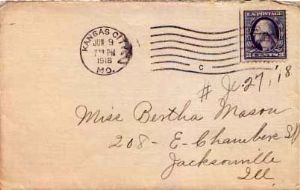 KANSAS CITY
JUN 9
PM
1918
MO.
C
U.S. POSTAGE
# Je. 27, '18
Miss Bertha Mason
208 - E - Chambers St
Jacksonville
Ill